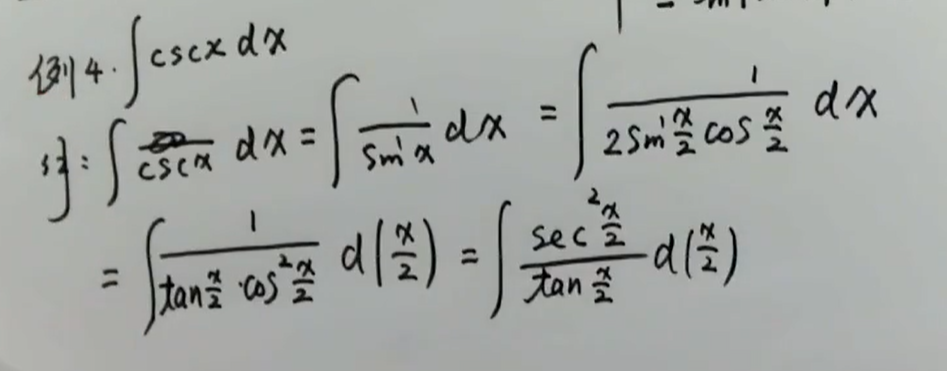 例4. ∫cscx dx
解: ∫cscx dx = ∫ 1/sin x dx = ∫ 1/(2sin x/2 cos x/2) dx
= ∫ 1/(tan x/2 · cos² x/2) d(x/2) = ∫ (sec² x/2)/(tan x/2) d(x/2)